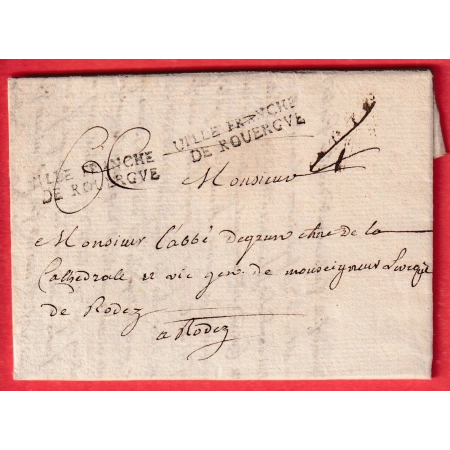 VILLE FRANCHE
DE ROUERGVE
VILLE FRANCHE
DE ROUERGVE
Monsieur
Monsieur l'abbé de la
Cathedrale et vic gen. de monseigneur
de Rodez
a Rodez